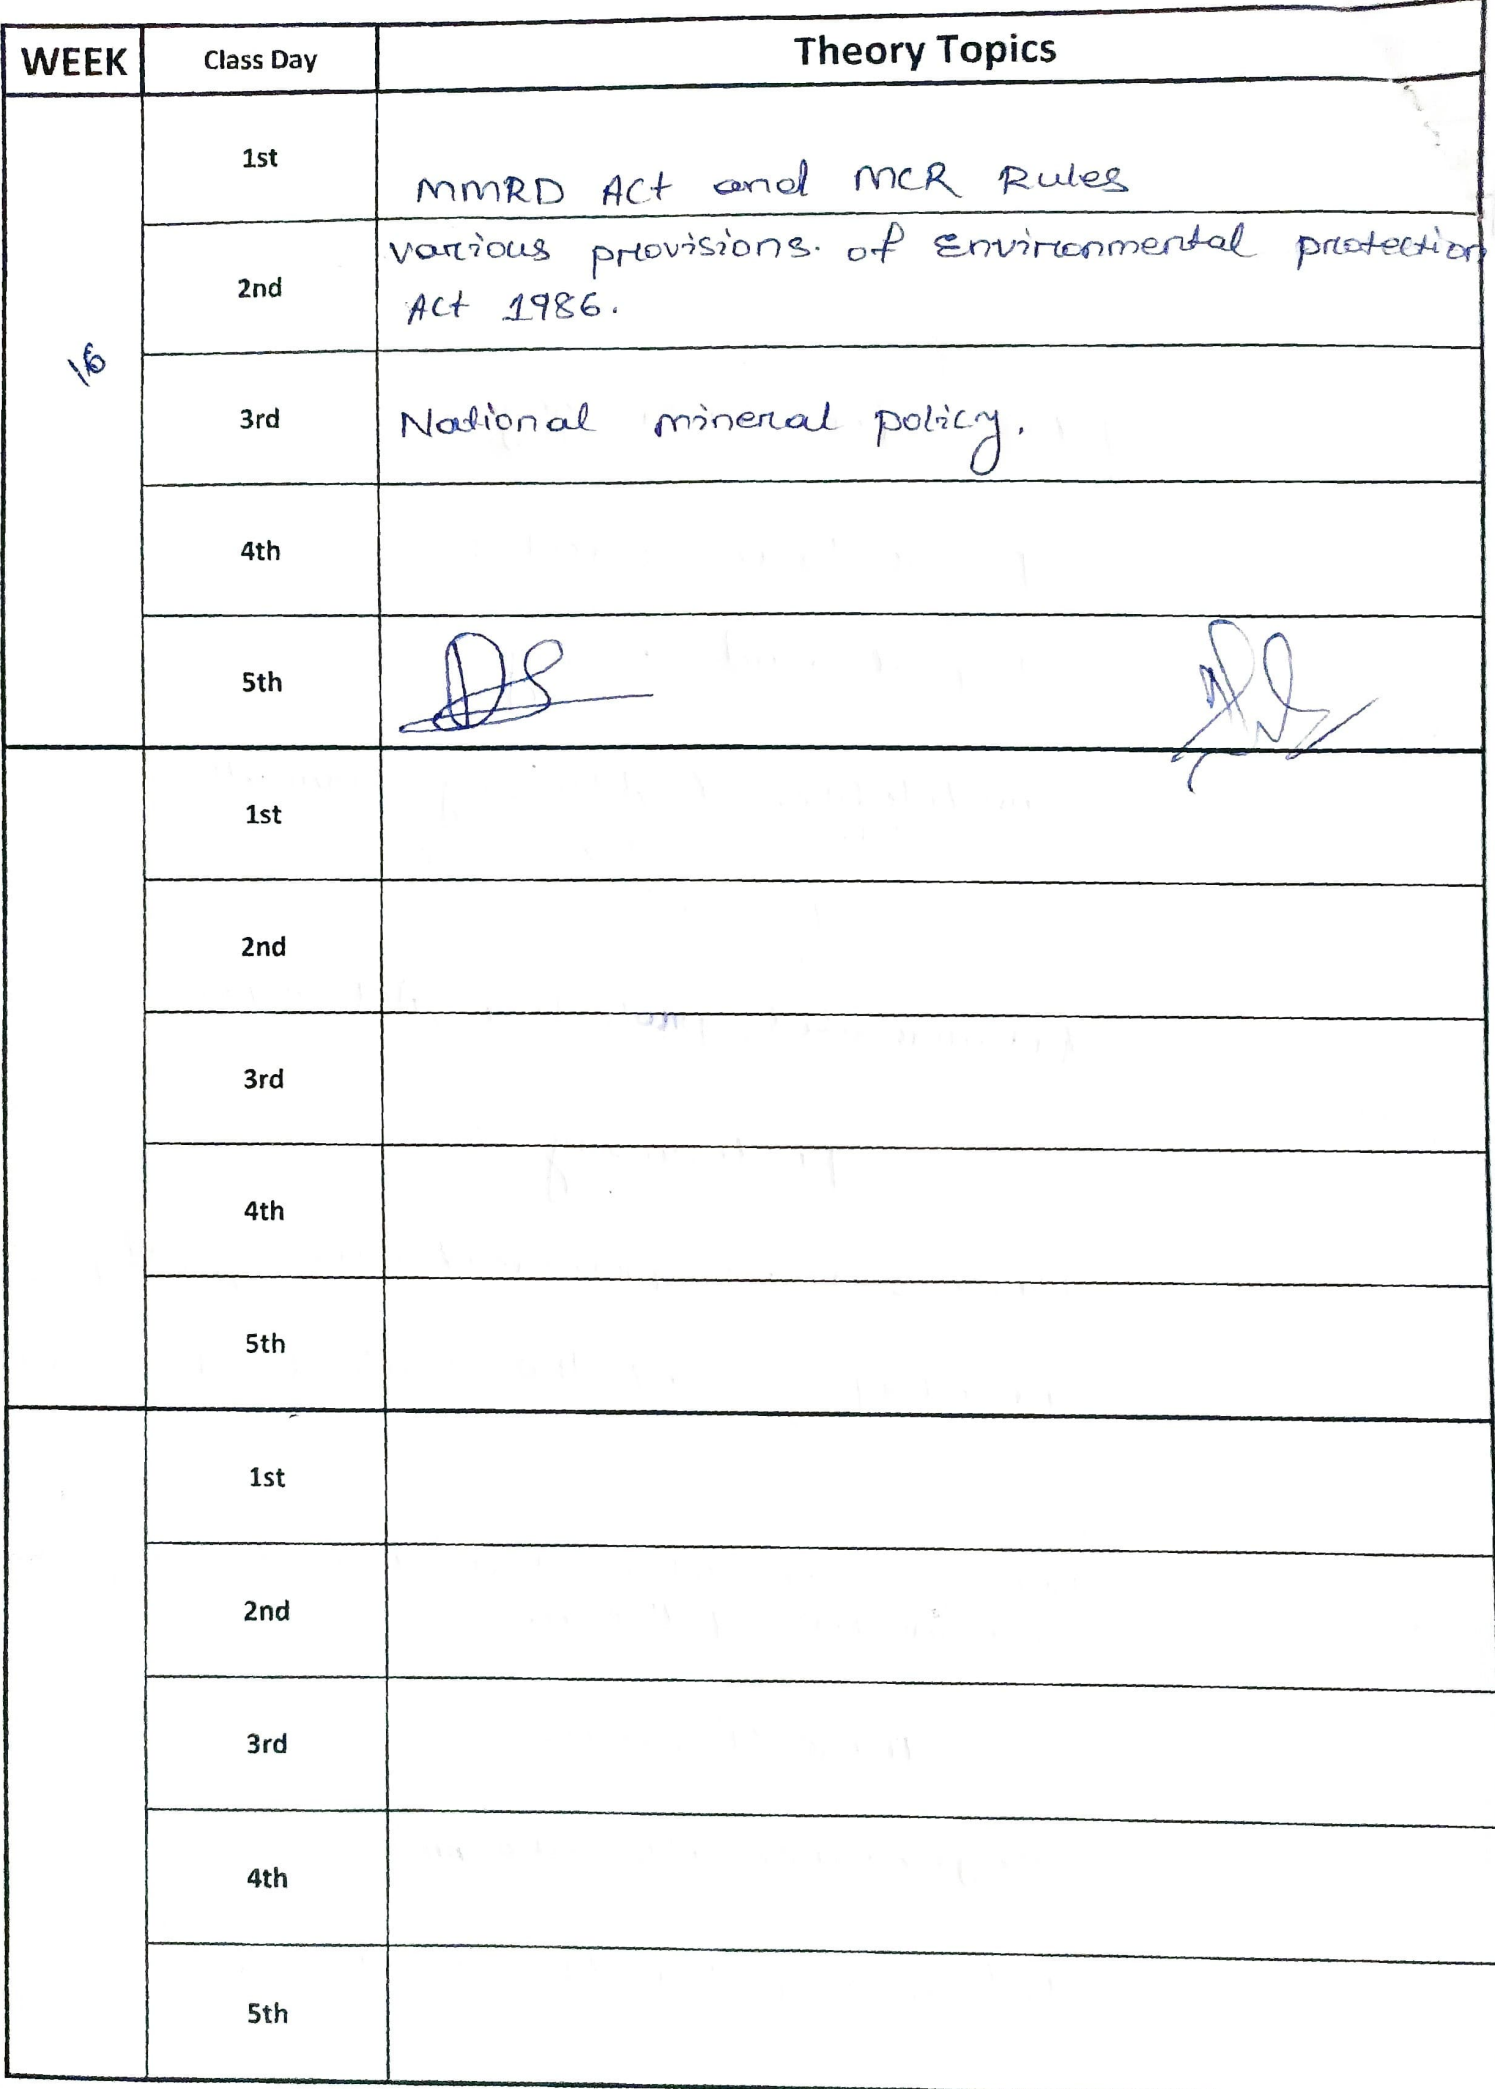 WEEK Class Day Theory Topics
1st
MMRD Act and MCR Rules
various provisions. of Environmental protection
2nd
Act 1986.
16
3rd National mineral policy.
4th
5th
1st
2nd
3rd
4th
5th
1st
2nd
3rd
4th
5th